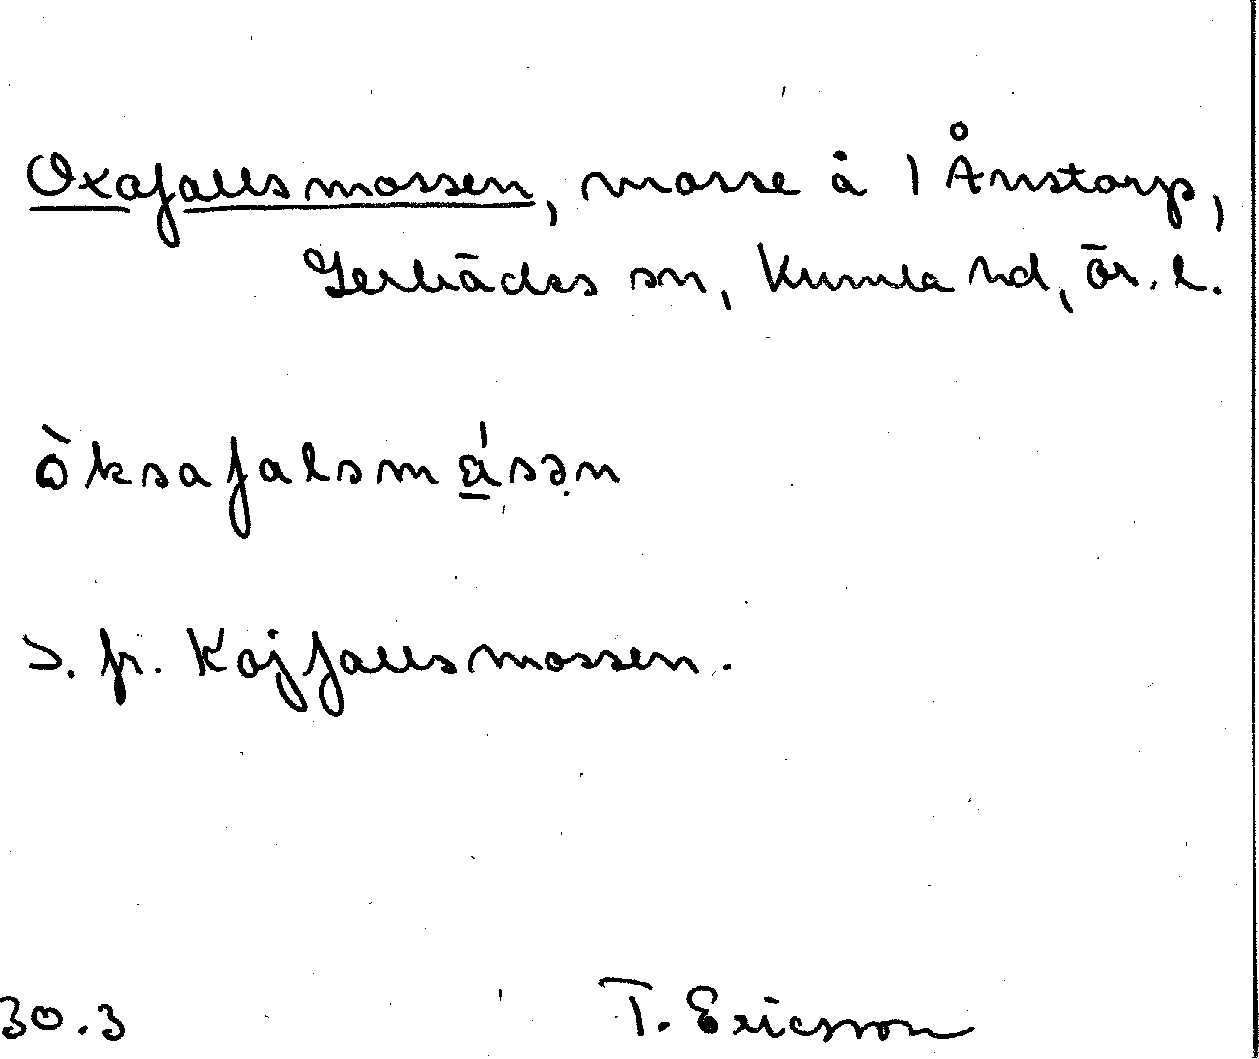 Oxafallsmossen, mosse å 1 Ånstorp,
Gerbäcks sn, Kumla hd, ör. l.
òksafalsmǻ̱sən
S. fr. Kojfallsmossen.
30.3 T. Ericsson